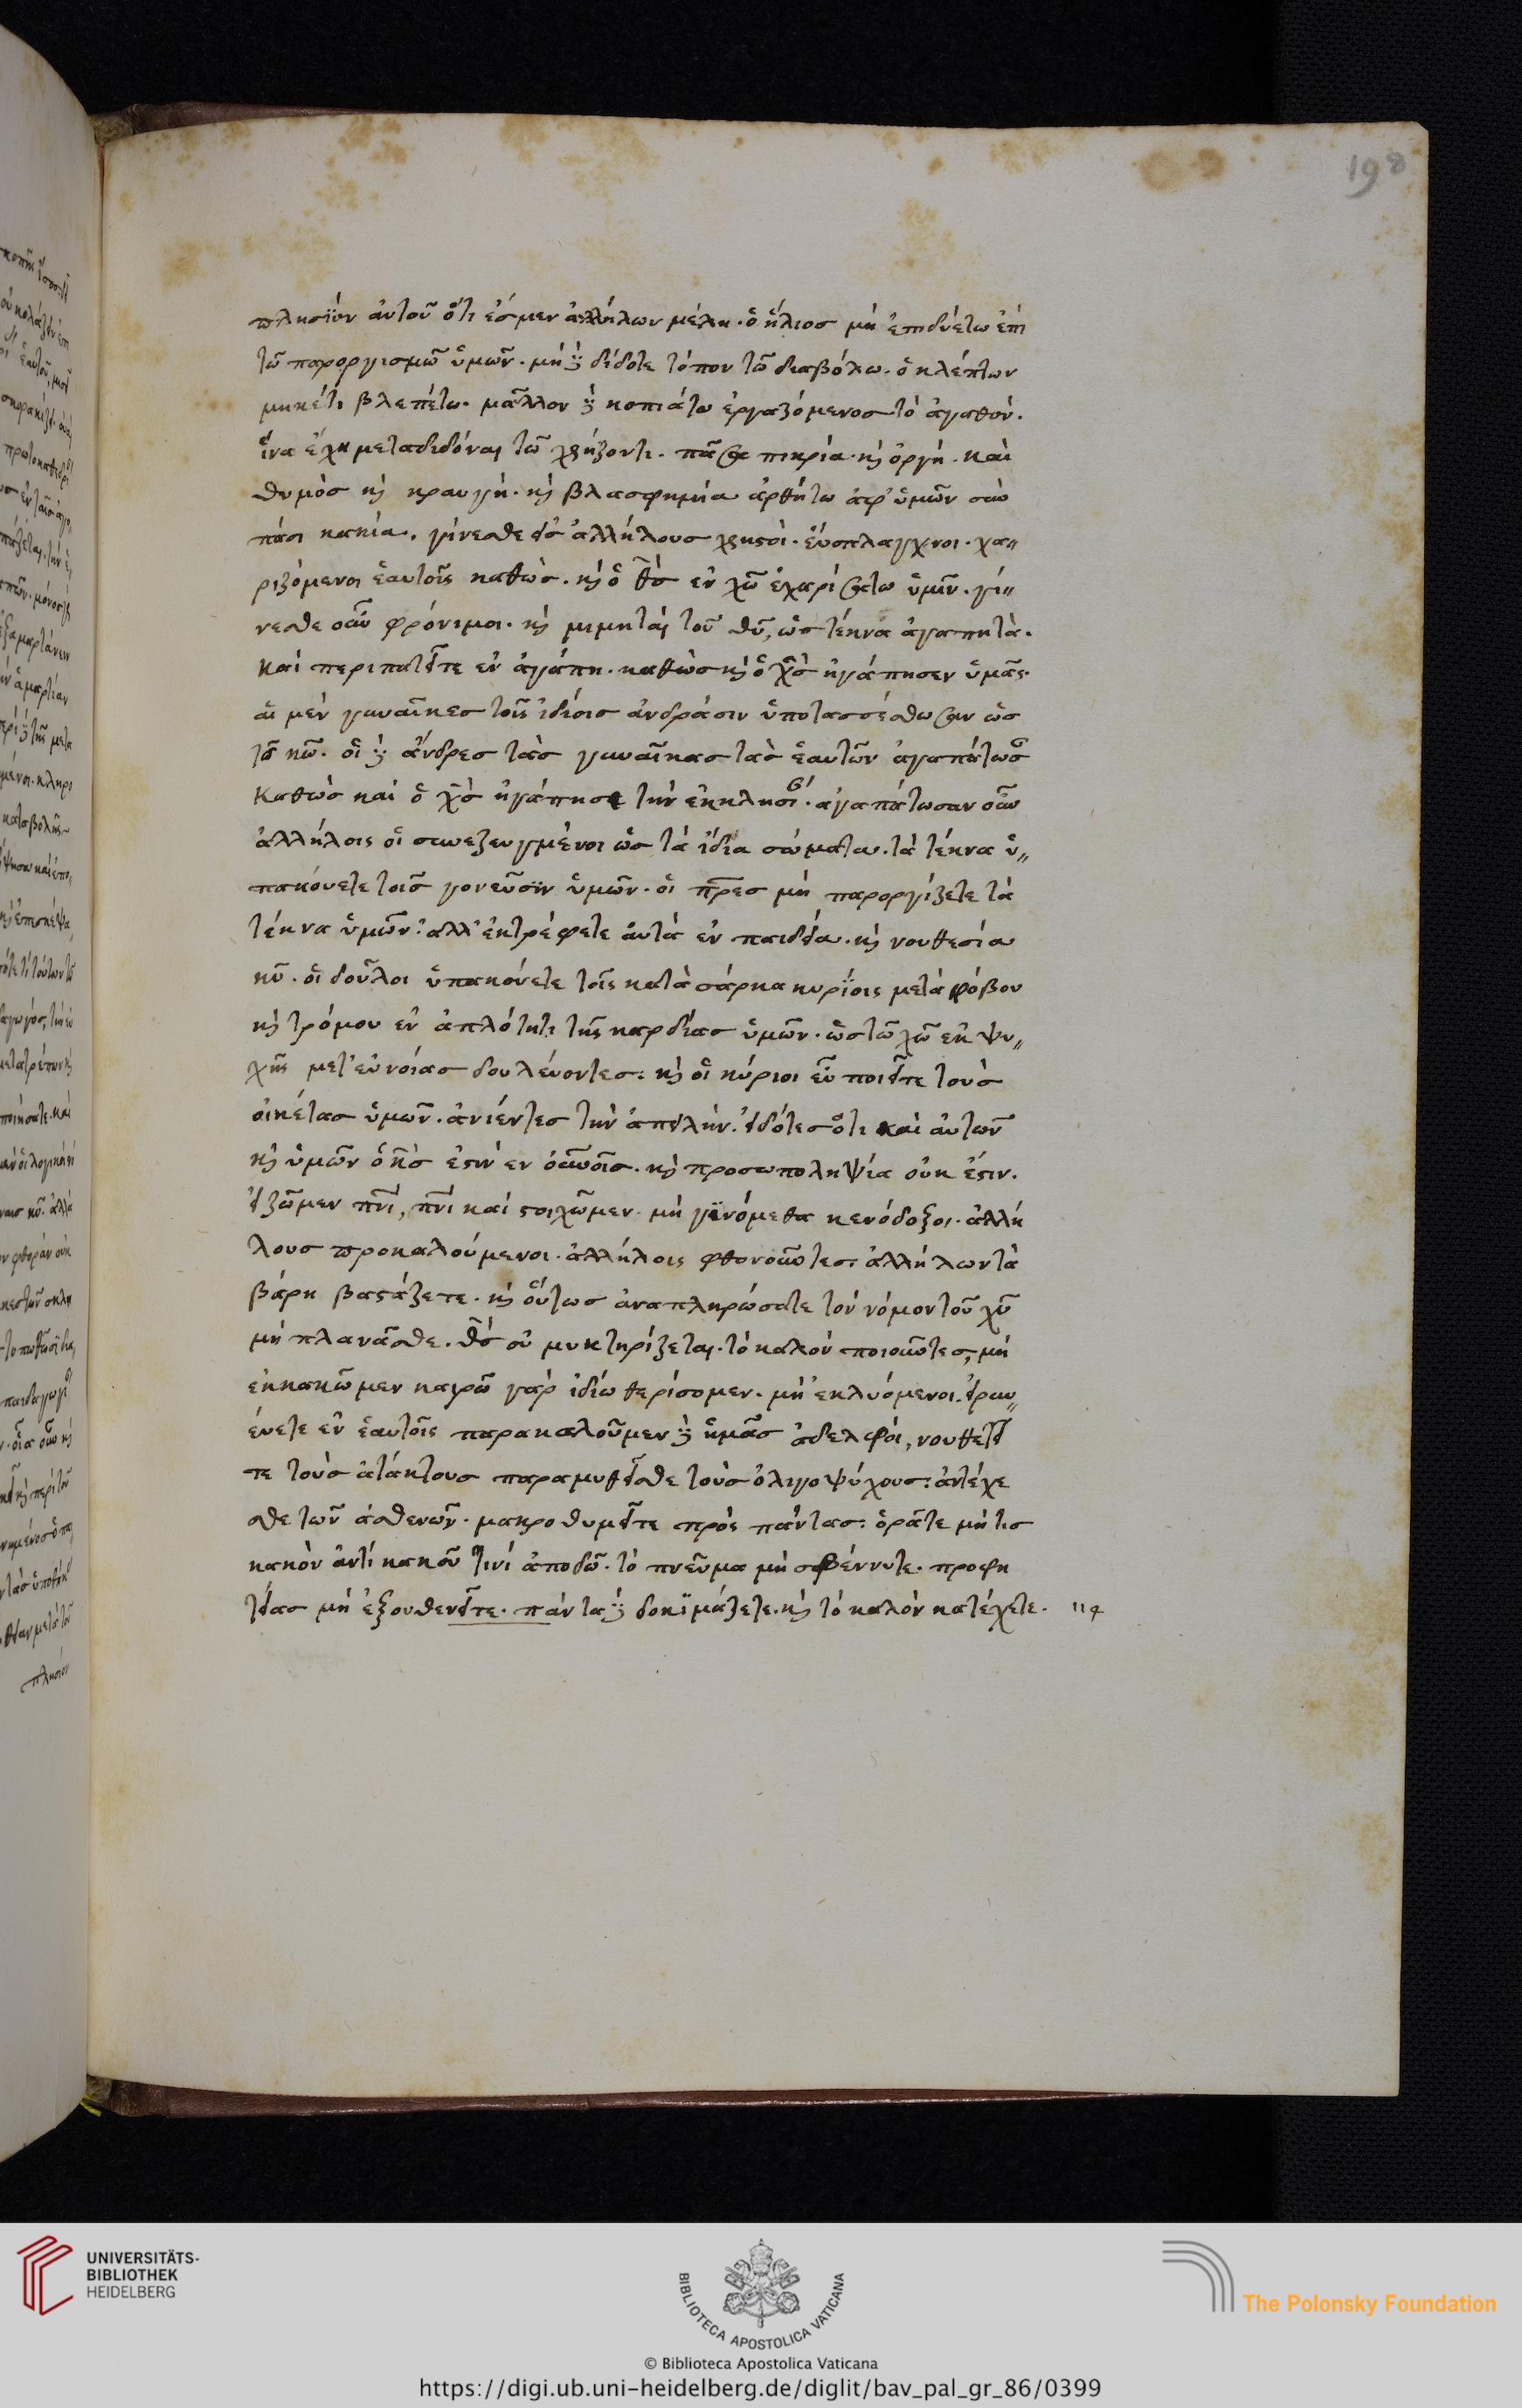 198
πλησϊὸν ἀυτοῦ ὅτι ἐσμεν ἀλλήλων μέλη. ὁ ἥλιοσ μὴ ἐπιδυέτω ἐπὶ
τῶ παροργισμῶ ὑμῶν. μὴ δὲ δίδοτε τόπον τῶ διαβόλω. ὁ κλέπτων
μηκέτι βλεπέτω. μᾶλλον δὲ κοπιάτω ἐργαζόμενοσ τὸ ἀγαθόν.
ἵνα ἔχη μεταδιδόναι τῶ χρήζοντι. πᾶσα πικρία. κὶ ὀργὴ. καὶ
θυμὸσ κὶ κραυγὴ. κὶ βλασφημία ἀρθήτω ἀφ' ὑμῶν σὺν
πάσι κακία. γίνεσθε εἰσ ἀλλήλουσ χρηστοὶ. ἐύσπλαγχνοι. χα〃
ριζόμενοι ἑαυτοῖς καθὼσ. κὶ ὁ θσ ἐν χῶ ἐχαρίσατω ὑμῖν. γί〃
νεσθε οὖν φρόνιμοι. κὶ μιμηταὶ τοῦ θῦ, ὡσ τέκνα ἀγαπητὰ.
καὶ περιπατεῖτε ἐν ἀγάπη. καθὼσ κὶ ὁ χσ ἠγάπησεν ὑμᾶς.
ἁι μὲν γυναῖκεσ τοῖς ἰδίοισ ἀνδράσιν ὑποτασσέσθωσαν ὡσ
τῶ κῶ. οἱ δὲ ἄνδρεσ τὰσ γυναῖκασ τὰσ ἑαυτῶν ἀγαπάτωσ
καθὼσ καὶ ὁ χσ ἠγάπησε τὴν ἐκκλησί. ἀγαπάτωσαν οὖν
ἀλλήλοις οἱ συνεζευγμένοι ὡς τὰ ἴδια σώματα. τὰ τέκνα ὑ〃
πακόυετε τοῖσ γονεῦσϊν ὑμῶν. οἱ πρεσ μὴ παροργίζετε τὰ
τέκνα ὑμῶν. ἀλλ' ἐκτρέφετε ἀυτὰ ἐν παιδεία. κὶ νουθεσία
κῦ. οἱ δοῦλοι ὑπακόυετε τοῖς κατὰ σάρκα κυρϊόις μετὰ φόβου
κὶ τρόμου ἐν ἁπλότητι τῆς καρδίασ ὑμῶν. ὡσ τῶ χῶ ἐκ ψυ〃
χῆς μετ' εὐνοίασ δουλέυοντεσ. κὶ οἱ κύριοι εὖ ποιεῖτε τοὺσ
οἰκέτασ ὑμῶν. ἀνιέντεσ τὴν ἀπειλὴν. εἰδότεσ ὅτι καὶ ἀυτῶν
κὶ ὑμῶν ὁ κσ ἐστιν ἐν ὀυνοῖσ. κὶ προσωποληψία οὐκ ἔστιν.
εἰ ζῶμεν πνὶ, πνὶ καὶ στοιχῶμεν. μὴ γϊνόμεθα κενόδοξοι. ἀλλή
λουσ προκαλούμενοι. ἀλλήλοις φθονοῦντεσ. ἀλλήλων τὰ
βάρη βαστάζετε. κὶ οὕτωσ ἀναπληρώσατε τὸν νόμον τοῦ χῦ
μὴ πλανᾶσθε. θσ οὐ μυκτηρίζεται. τὸ καλὸν ποιοῦντεσ, μὴ
ἐκκακῶμεν καιρῶ γὰρ ἰδίω θερίσομεν. μὴ ἐκλυόμενοι. εἰρην〃
έυετε ἐν ἑαυτοῖς παρακαλοῦμεν δὲ ὑμᾶσ ἀδελφοί, νουθετεῖ
τε τοὺσ ἀτάκτουσ παραμυθεῖσθε τοὺσ ὀλιγοψύχουσ. ἀντέχε
σθε τῶν ἀσθενῶν. μακροθυμεῖτε πρὸς πάντασ. ὁρᾶτε μή τισ
κακὸν ἀντὶ κακοῦ τινὶ ἀποδῶ. τὸ πνεῦμα μὴ σβέννυτε. προφη
τείασ μὴ ἐξουθενεῖτε. πάντα δὲ δοκϊμάζετε. κὶ τὸ καλὸν κατέχετε.
UNIVERSITÄTS-
BIBLIOTHEK
HEIDELBERG
BIBLIOTECA APOSTOLICA VATICANA
The Polonsky Foundation
© Biblioteca Apostolica Vaticana
https://digi.ub.uni-heidelberg.de/diglit/bav_pal_gr_86/0399